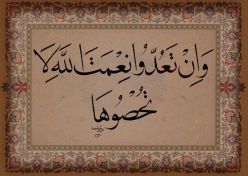 وَإِنْ تَعُدُّوا نِعْمَتَ اللَّهِ لَا
تُحْصُوهَا